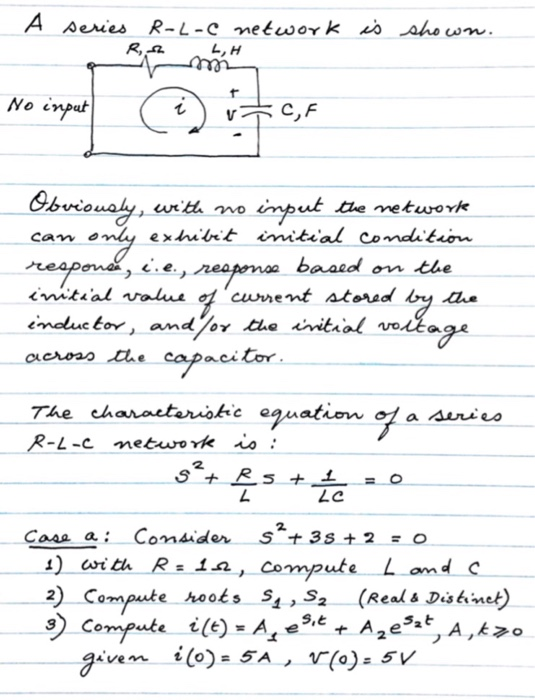 A series R-L-C network is shown.
R, Ω L, H
No input
i
+
V
-
C, F
Obviously, with no input the network
can only exhibit initial condition
response, i.e., response based on the
initial value of current stored by the
inductor, and/or the initial voltage
across the capacitor.
The characteristic equation of a series
R-L-C network is :
S² + R/L S + 1/LC = 0
Case a : Consider S² + 3S + 2 = 0
1) with R = 1Ω, compute L and C
2) Compute roots S₁, S₂ (Real & Distinct)
3) Compute i(t) = A₁ e^{S₁t} + A₂ e^{S₂t}, A, t ≥ 0
given i(0) = 5A, V(0) = 5V